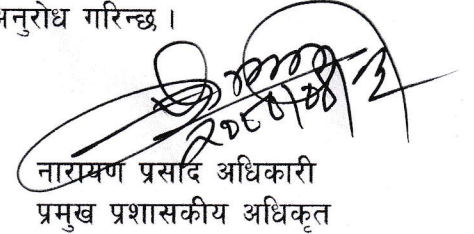 अनुरोध गरिन्छ ।
नारायण प्रसाद अधिकारी
प्रमुख प्रशासकीय अधिकृत